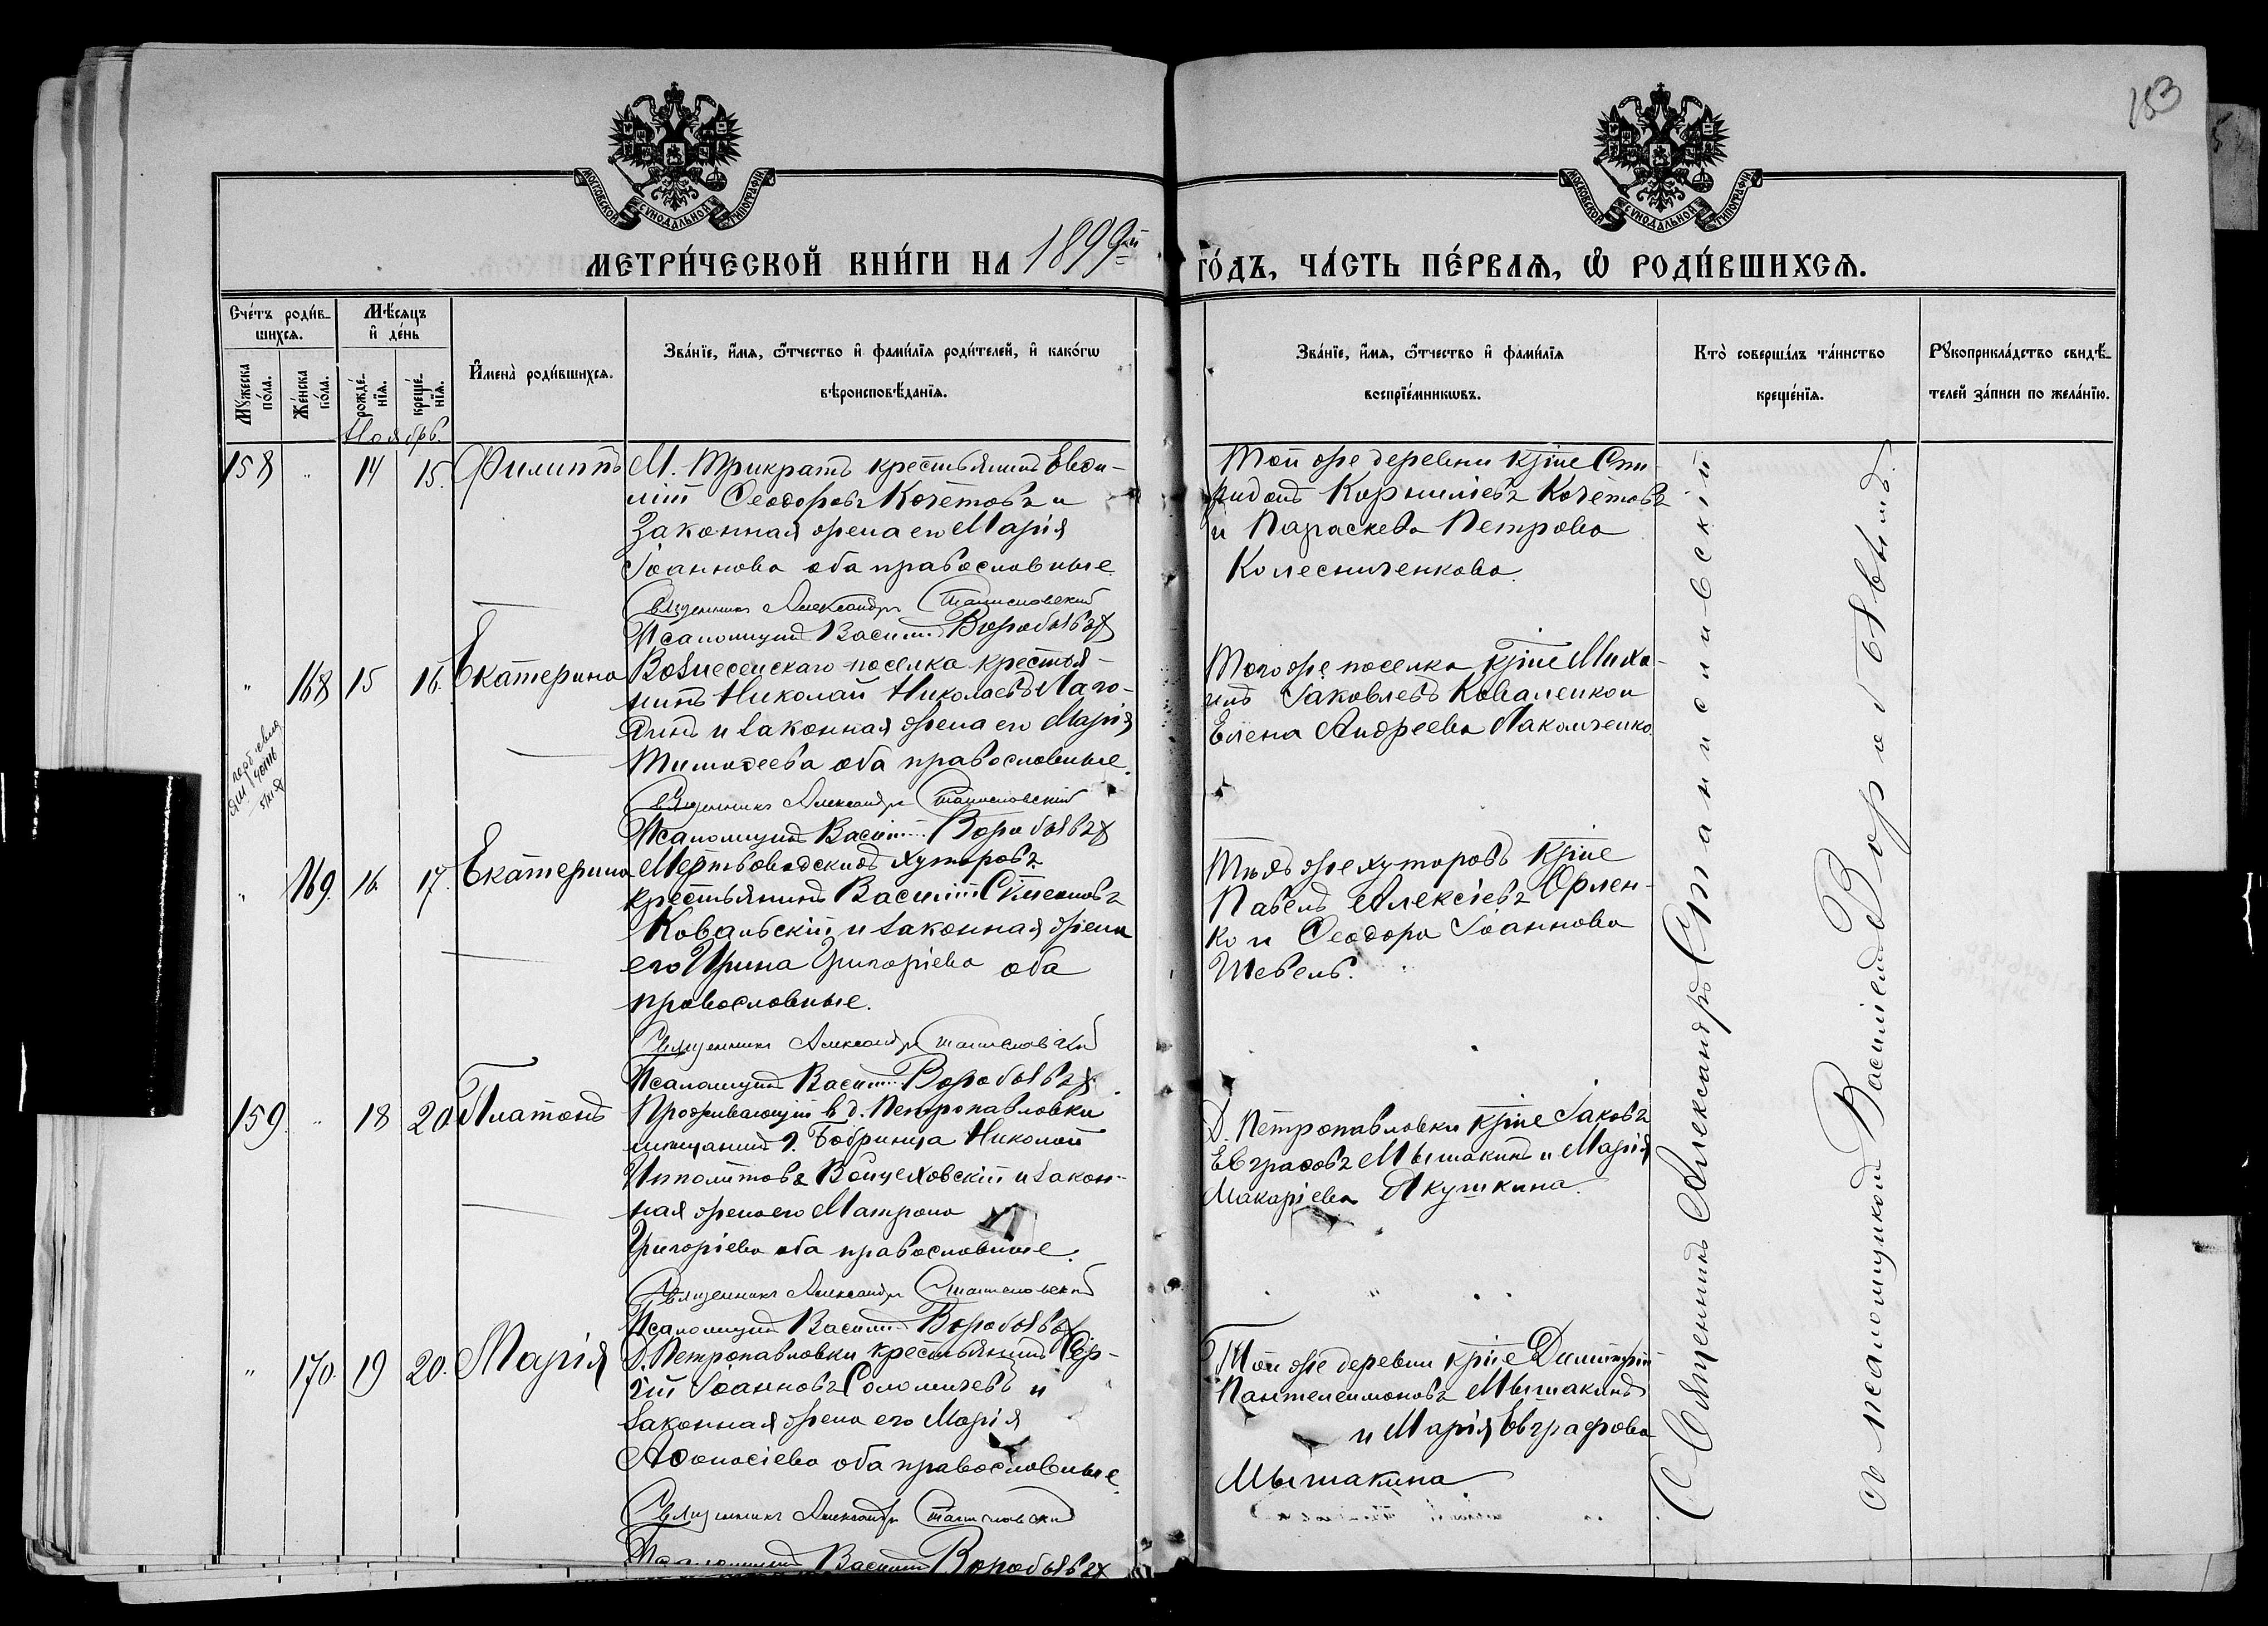 183
МОСКОВСКОЙ СУНОДАЛЬНОЙ ТИПОГРАФІИ
МОСКОВСКОЙ СУНОДАЛЬНОЙ ТИПОГРАФІИ
МЕТРИ́ЧЕСКОЙ КНИ́ГИ НА 1899ый
ГО́ДЪ, ЧА́СТЬ ПЕ́РВАѦ, Ѡ҆ РОДИ́ВШИХСѦ.
Сче́тъ роди́в-
шихсѧ.
Мѣ́сѧцъ
и҆ де́нь
Мꙋ́жеска
по́ла.
Же́нска
по́ла.
рожде́-
нїѧ.
креще́-
нїѧ.
И҆мена̀ роди́вшихсѧ.
Зва́нїе, и҆́мѧ, ѻ҆́тчество и҆ фами́лїѧ роди́телей, и҆ како́гѡ
вѣроисповѣ́данїѧ.
Зва́нїе, и҆́мѧ, ѻ҆́тчество и҆ фами́лїѧ
воспрїе́мникѡвъ.
Кто̀ соверша́лъ та́инство
креще́нїѧ.
Рꙋкоприкла́дство свидѣ́-
телей за́писи по жела́нїю.
Ноябрь.
158 " 14 15. Филиппъ
М. Трикратъ крестьянинъ Евѳи-
мій Ѳеодоровъ Кочетовъ и
законная жена его Марія
Іоаннова оба православные.
Священникъ Александръ Станиславскій
Псаломщикъ Василій Воробьевъ
Той же деревни кр͞не Спи-
ридонъ Корниліевъ Кочетовъ
и Параскева Петрова
Колесниченкова.
" 168 15 16. Екатерина
Вознесенскаго поселка крестья-
нинъ Николай Николаевъ Лаго-
динъ и законная жена его Марія
Тимоѳеева оба православные.
Священникъ Александръ Станиславскій
Псаломщикъ Василій Воробьевъ
Того же поселка кр͞не Миха-
илъ Іаковлевъ Коваленко и
Елена Андреева Лакомченко.
" 169. 16. 17. Екатерина
Мертвоводскихъ хуторовъ
крестьянинъ Василій Сѵмеоновъ
Ковальскій и законная жена
его Ирина Григоріева оба
православные.
Священникъ Александръ Станиславскій
Псаломщикъ Василій Воробьевъ
Тѣхъ же хуторовъ кр͞не
Павелъ Алексіевъ Орлен-
ко и Ѳеодора Іоаннова
Шевель.
159. " 18 20. Платонъ
Проживающій въ д. Петропавловки
мѣщанинъ г. Бобринца Николай
Ипполитовъ Войцеховскій и закон-
ная жена его Матрона
Григоріева оба православные.
Священникъ Александръ Станиславскій
Псаломщикъ Василій Воробьевъ
Д. Петропавловки кр͞не Іаковъ
Евграфовъ Мышакинъ и Марія
Макаріева Якушкина.
" 170. 19 20. Марія
Д. Петропавловки крестьянинъ Сер-
гій Іоанновъ Соломичевъ и
законная жена его Марія
Аѳанасіева оба православные.
Священникъ Александръ Станиславскій
Псаломщикъ Василій Воробьевъ
Той же деревни кр͞не Димитрій
Пантелеимоновъ Мышакинъ
и Марія Евграфова
Мышакина
Священникъ Александръ Станиславскій
съ псаломщикомъ Василіемъ Воробьевымъ.